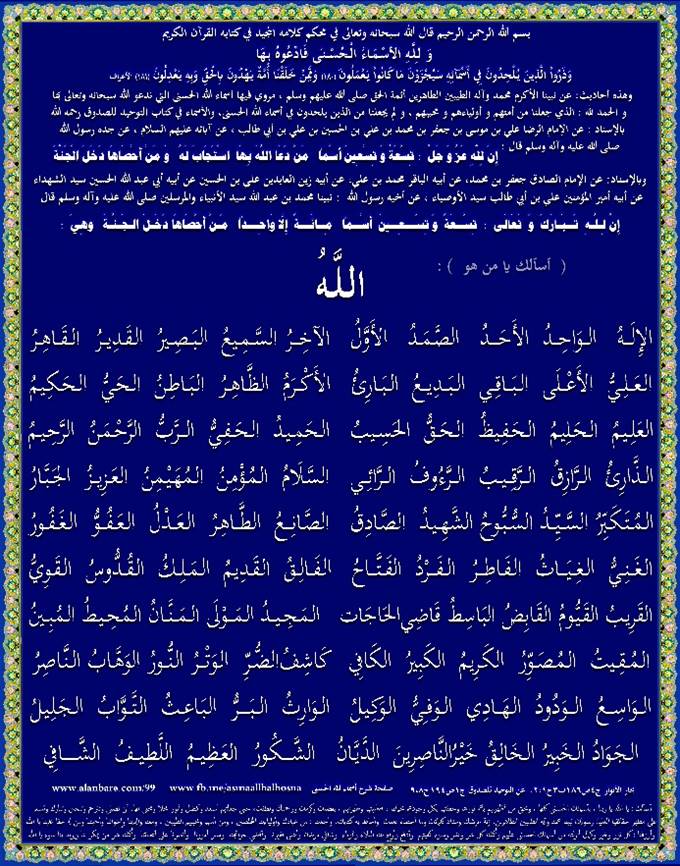 بسم الله الرحمن الرحيم قال الله سبحانه وتعالى في محكم كلامه المجيد في كتابه القرآن الكريم
وَ لِلَّهِ الأَسْمَاءُ الْحُسْنَى فَادْعُوهُ بِهَا
وَذَرُواْ الَّذِينَ يُلْحِدُونَ فِي أَسْمَآئِهِ سَيُجْزَوْنَ مَا كَانُواْ يَعْمَلُونَ (١٨٠) وَمِمَّنْ خَلَقْنَا أُمَّةٌ يَهْدُونَ بِالْحَقِّ وَبِهِ يَعْدِلُونَ (١٨١) الأعراف
وهذه أحاديث: عن نبينا الأكرم محمد وآله الطيبين الطاهرين أئمة الحق صلى الله عليهم وسلم ، مروي فيها أسماء الله الحسنى التي ندعو الله سبحانه وتعالى بها
و الحمد لله : الذي جعلنا من أمتهم و أوليائهم و محبيهم ، و لم يجعلنا من الذين يلحدون في أسماء الله الحسنى، والأسماء في كتاب التوحيد للصدوق رحمه الله
بالإسناد : عن الإمام الرضا علي بن موسى بن جعفر بن محمد بن علي بن الحسين بن علي بن أبي طالب ، عن آبائه عليهم السلام ، عن جده رسول الله
صلى الله عليه وآله وسلم قال : إن لله عز و جل : تسعة و تسعين أسما من دعا الله بها استجاب له و من أحصاها دخل الجنة
وبالإسناد: عن الإمام الصادق جعفر بن محمد، عن أبيه الباقر محمد بن علي، عن أبيه زين العابدين علي بن الحسين عن أبيه أبي عبد الله الحسين سيد الشهداء
عن أبيه أمير المؤمنين علي بن أبي طالب سيد الأوصياء ، عن أخيه رسول الله : نبينا محمد بن عبد الله سيد الأنبياء والمرسلين صلى الله عليه وآله وسلم قال
إن لـلـه تـبـارك و تعالى : تسعة و تسـعـيـن أسـمـا مـائـة إلا واحـدا مـن أحصاها دخـل الـجـنـة وهي :
( أسألك يا من هو ) :
اللَّهُ
الإِلَهُ الوَاحِدُ الأَحَدُ الصَّمَدُ الأَوَّلُ الآخِرُ السَّمِيعُ البَصِيرُ القَدِيرُ القَاهِرُ
العَلِيُّ الأَعْلَى البَاقِي البَدِيعُ البَارِئُ الأَكْرَمُ الظَّاهِرُ البَاطِنُ الحَيُّ الحَكِيمُ
العَلِيمُ الحَلِيمُ الحَفِيظُ الحَقُّ الحَسِيبُ الحَمِيدُ الحَفِيُّ الرَّبُّ الرَّحْمَنُ الرَّحِيمُ
الذَّارِئُ الرَّازِقُ الرَّقِيبُ الرَّءُوفُ الرَّائِي السَّلَامُ المُؤْمِنُ المُهَيْمِنُ العَزِيزُ الجَبَّارُ
المُتَكَبِّرُ السَّيِّدُ السُّبُّوحُ الشَّهِيدُ الصَّادِقُ الصَّانِعُ الطَّاهِرُ العَدْلُ العَفُوُّ الغَفُورُ
الغَنِيُّ الغِيَاثُ الفَاطِرُ الفَرْدُ الفَتَّاحُ الفَالِقُ القَدِيمُ المَلِكُ القُدُّوسُ القَوِيُّ
القَرِيبُ القَيُّومُ القَابِضُ البَاسِطُ قَاضِي الحَاجَات المَجِيدُ المَوْلَى المَنَّانُ المُحِيطُ المُبِينُ
المُقِيتُ المُصَوِّرُ الكَرِيمُ الكَبِيرُ الكَافِي كَاشِفُ الضُّرِّ الوَتْرُ النُّورُ الوَهَّابُ النَّاصِرُ
الوَاسِعُ الوَدُودُ الهَادِي الوَفِيُّ الوَكِيلُ الوَارِثُ البَرُّ البَاعِثُ التَّوَّابُ الجَلِيلُ
الجَوَادُ الخَبِيرُ الخَالِقُ خَيْرُ النَّاصِرِينَ الدَّيَّانُ الشَّكُورُ العَظِيمُ اللَّطِيفُ الشَّافِي
بحار الأنوار ج٤ص١٨٦ب٣ح٢، عن التوحيد للصدوق ج١ص١٩٤ح٨ صفحة شرح أسماء الله الحسنى www.fb.me/asmaallhalhosna www.alanbare.com/99